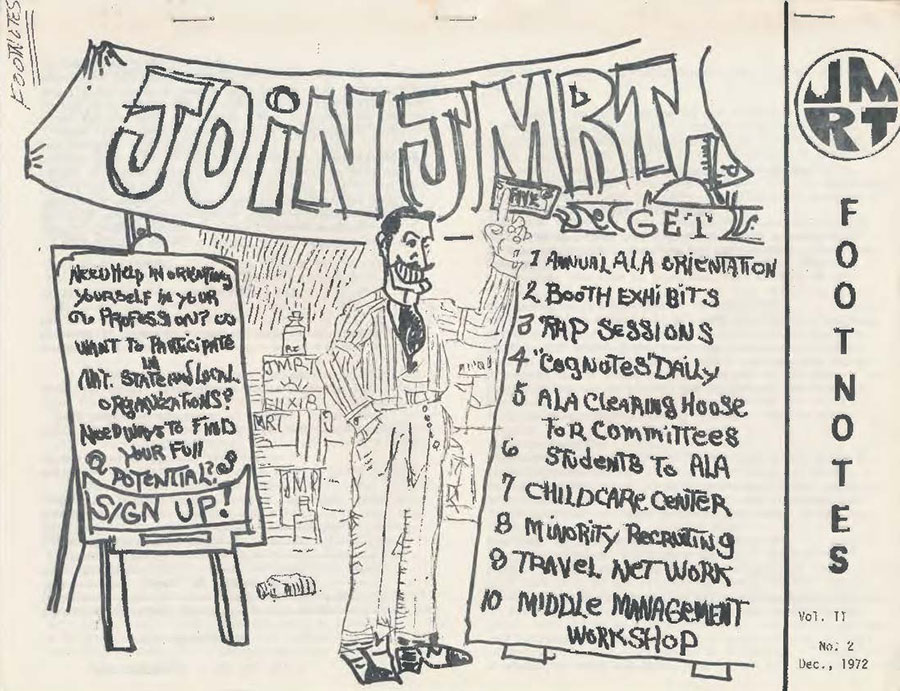 FOOTNOTES
JOiN JMRT!
GET
NEED HELP IN ORIENTING
YOURSELF IN YOUR
PROFESSION?
WANT TO PARTICIPATE
IN
NAT. STATE AND LOCAL
ORGANIZATIONS?
NEED WAYS TO FIND
YOUR FULL
POTENTIAL?
SIGN UP!
JMRT
ELIXIR
MRT
JMR
1 ANNUAL ALA ORIENTATION
2 BOOTH EXHIBITS
3 RAP SESSIONS
4 "COGNOTES" DAILY
5 ALA CLEARING HOUSE
FOR COMMITTEES
6 STUDENTS TO ALA
7 CHILDCARE CENTER
8 MINORITY RECRUITING
9 TRAVEL NETWORK
10 MIDDLE MANAGEMENT
WORKSHOP
JM
RT
FOOTNOTES
Vol. II
No. 2
Dec., 1972